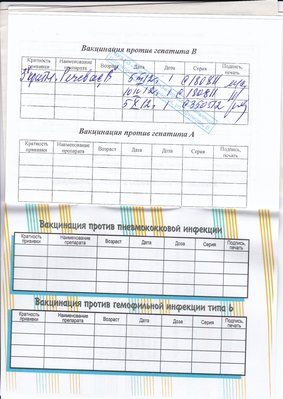 Вакцинация против гепатита В
Кратность прививки Наименование препарата Возраст Дата Доза Серия Подпись, печать
1
10 12 1
5 X 12 1
Вакцинация против гепатита А
Кратность прививки Наименование препарата Возраст Дата Доза Серия Подпись, печать
Вакцинация против пневмококковой инфекции
Кратность прививки Наименование препарата Возраст Дата Доза Серия Подпись, печать
Вакцинация против гемофильной инфекции типа б
Кратность прививки Наименование препарата Возраст Дата Доза Серия Подпись, печать